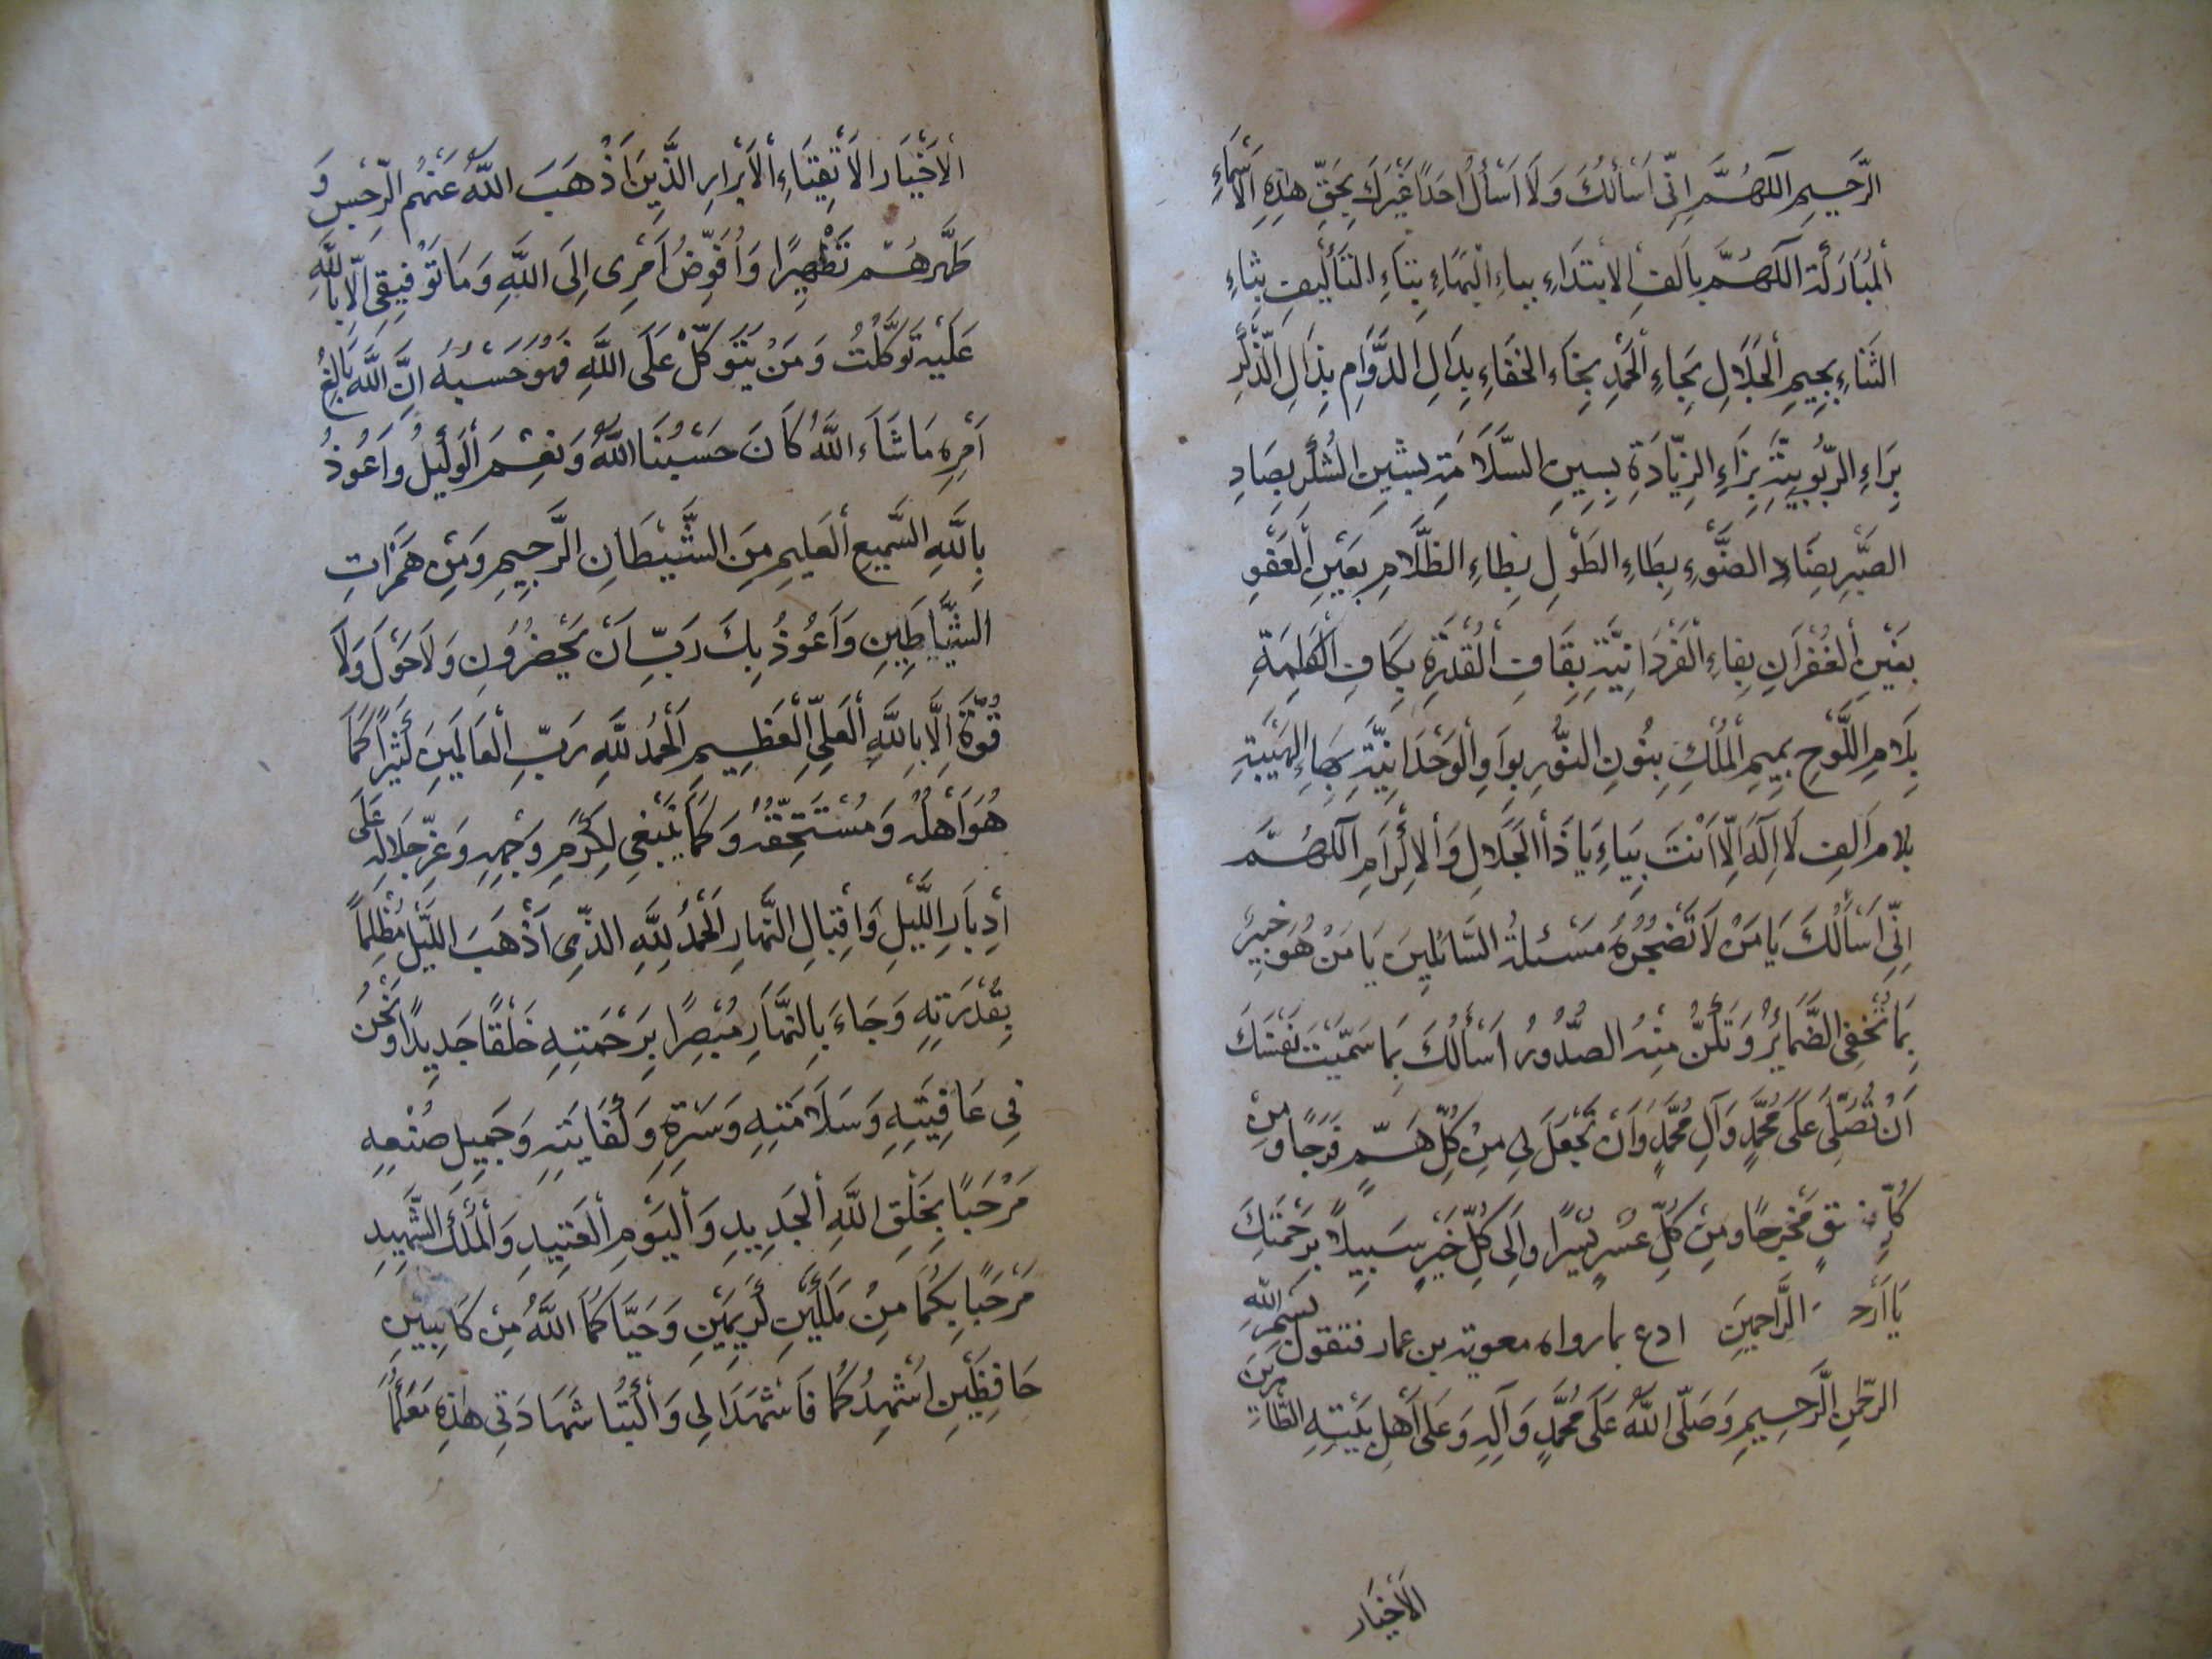 الرَّحِيمِ اَللّٰهُمَّ اِنّى اَسْأَلُكَ وَلَا اَسْأَلُ اَحَدًا غَيْرَكَ بِحَقِّ هٰذِهِ الْاَسْمَاءِ
الْمُبَارَكَةِ اَللّٰهُمَّ بِاَلِفِ الْاِبْتِدَاءِ بِبَاءِ الْبَهَاءِ بِتَاءِ التَّأْلِيفِ بِثَاءِ
الثَّنَاءِ بِجِيمِ الْجَلَالِ بِحَاءِ الْحَمْدِ بِخَاءِ الْخَفَاءِ بِدَالِ الدَّوَامِ بِذَالِ الذِّكْرِ
بِرَاءِ الرُّبُوبِيَّةِ بِزَاءِ الزِّيَادَةِ بِسِينِ السَّلَامَةِ بِشِينِ الشُّكْرِ بِصَادِ
الصَّبْرِ بِضَادِ الضَّوْءِ بِطَاءِ الطَّوْلِ بِظَاءِ الظَّلَامِ بِعَيْنِ الْعَفْوِ
بِغَيْنِ الْغُفْرَانِ بِفَاءِ الْفَرْدَانِيَّةِ بِقَافِ الْقُدْرَةِ بِكَافِ الْكَلِمَةِ
بِلَامِ اللَّوْحِ بِمِيمِ الْمُلْكِ بِنُونِ النُّورِ بِوَاوِ الْوَحْدَانِيَّةِ بِهَاءِ الْهَيْبَةِ
بِلَامِ اَلِفِ لَا اِلٰهَ اِلَّا اَنْتَ بِيَاءِ يَا ذَا الْجَلَالِ وَالْاِكْرَامِ اَللّٰهُمَّ
اِنّى اَسْأَلُكَ يَا مَنْ لَا تَضْجُرُهُ مَسْئَلَةُ السَّائِلِينَ يَا مَنْ هُوَ خَبِيرٌ
بِمَا تُخْفِى الضَّمَائِرُ وَتَكُنُّ مِنْهُ الصُّدُورُ اَسْأَلُكَ بِمَا سَمَّيْتَ نَفْسَكَ
اَنْ تُصَلِّىَ عَلَى مُحَمَّدٍ وَآلِ مُحَمَّدٍ وَاَنْ تَجْعَلَ لِى مِنْ كُلِّ هَمٍّ فَرَجًا وَمِنْ
مَخْرَجًا وَمِنْ كُلِّ عُسْرٍ يُسْرًا وَاِلَى كُلِّ خَيْرٍ سَبِيلًا بِرَحْمَتِكَ
يَا الرَّاحِمِينَ ادع بما رواه معوية بن عمار فتقول بِسْمِ اللّٰهِ
الرَّحْمٰنِ الرَّحِيمِ وَصَلَّى اللّٰهُ عَلَى مُحَمَّدٍ وَآلِهِ وَعَلَى اَهْلِ بَيْتِهِ الطَّاهِرِينَ
الْاَخْيَارِ
الْاَخْيَارِ الْاَتْقِيَاءِ الْاَبْرَارِ الَّذِينَ اَذْهَبَ اللّٰهُ عَنْهُمُ الرِّجْسَ وَ
طَهَّرَهُمْ تَطْهِيرًا وَاُفَوِّضُ اَمْرِى اِلَى اللّٰهِ وَمَا تَوْفِيقِى اِلَّا بِاللّٰهِ
عَلَيْهِ تَوَكَّلْتُ وَمَنْ يَتَوَكَّلْ عَلَى اللّٰهِ فَهُوَ حَسْبُهُ اِنَّ اللّٰهَ بَالِغُ
اَمْرِهِ مَا شَاءَ اللّٰهُ كَانَ حَسْبُنَا اللّٰهُ وَنِعْمَ الْوَكِيلُ وَاَعُوذُ
بِاللّٰهِ السَّمِيعِ الْعَلِيمِ مِنَ الشَّيْطَانِ الرَّجِيمِ وَمِنْ هَمَزَاتِ
الشَّيَاطِينِ وَاَعُوذُ بِكَ رَبِّ اَنْ يَحْضُرُونِ وَلَا حَوْلَ وَلَا
قُوَّةَ اِلَّا بِاللّٰهِ الْعَلِىِّ الْعَظِيمِ اَلْحَمْدُ لِلّٰهِ رَبِّ الْعَالَمِينَ كَثِيرًا كَمَا
هُوَ اَهْلُهُ وَمُسْتَحِقُّهُ وَكَمَا يَنْبَغِى لِكَرَمِ وَجْهِهِ وَعِزِّ جَلَالِهِ عَلَى
اِدْبَارِ اللَّيْلِ وَاِقْبَالِ النَّهَارِ اَلْحَمْدُ لِلّٰهِ الَّذِى اَذْهَبَ اللَّيْلَ مُظْلِمًا
بِقُدْرَتِهِ وَجَاءَ بِالنَّهَارِ مُبْصِرًا بِرَحْمَتِهِ خَلْقًا جَدِيدًا وَنَحْنُ
فِى عَافِيَتِهِ وَسَلَامَتِهِ وَسَتْرِهِ وَكِفَايَتِهِ وَجَمِيلِ صُنْعِهِ
مَرْحَبًا بِخَلْقِ اللّٰهِ الْجَدِيدِ وَالْيَوْمِ الْعَتِيدِ وَالْمَلَكِ الشَّهِيدِ
مَرْحَبًا بِكُمَا مِنْ مَلَكَيْنِ كَرِيمَيْنِ وَحَيَّاكُمَا اللّٰهُ مِنْ كَاتِبَيْنِ
حَافِظَيْنِ اُشْهِدُكُمَا فَاشْهَدَا لِى وَاكْتُبَا شَهَادَتِى هٰذِهِ مَعَكُمَا